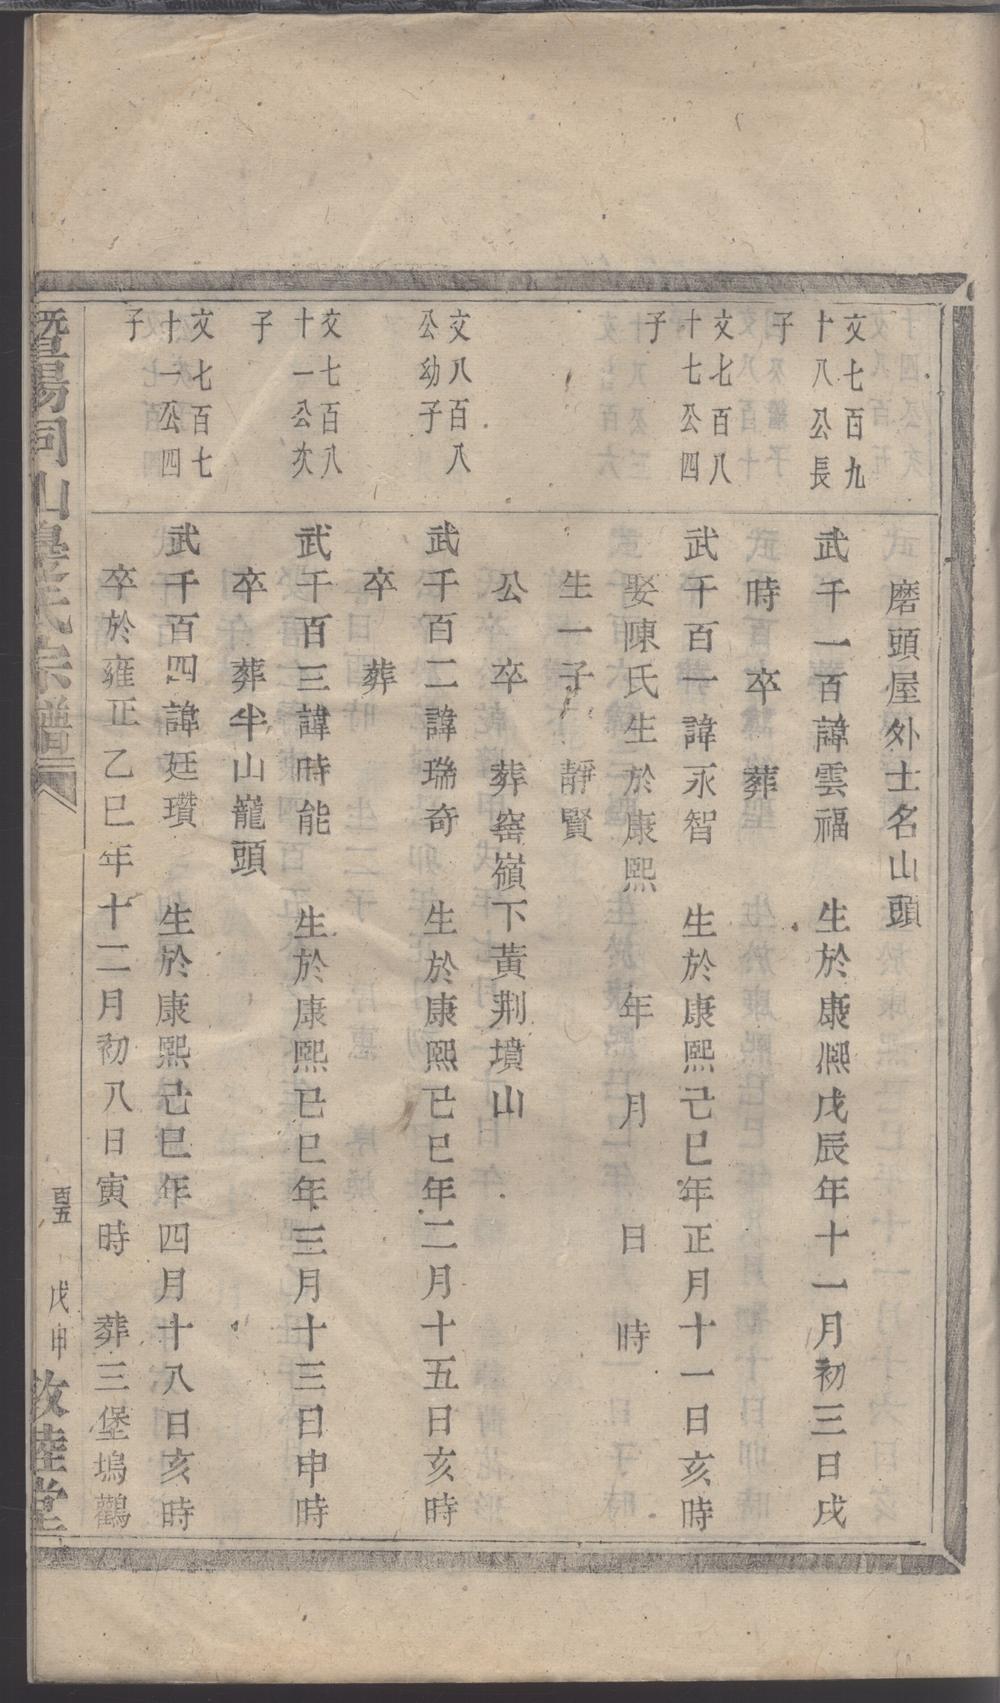 磨頭屋外士名山頭
文七百九
十八公長
子
武千一百諱雲福　生於康熈戊辰年十一月初三日戌
時　卒　葬
文七百八
十七公四
子
武千百一諱永智　生於康熙己巳年正月十一日亥時
娶陳氏生於康熙　年　月　日　時
生一子　靜賢
公　卒　葬窰嶺下黃荆墳山
文八百八
公幼子
武千百二諱瑞奇　生於康熙己巳年二月十五日亥時
卒　葬
文七百八
十一公次
子
武千百三諱時能　生於康熙己巳年三月十三日申時
卒　葬半山巃頭
文七百七
十一公四
子
武千百四諱廷瓚　生於康熙己巳年四月十八日亥時
卒於雍正乙巳年十二月初八日寅時　葬三堡塢鸛
暨陽同山邊氏宗譜　百五　戊申　敦睦堂